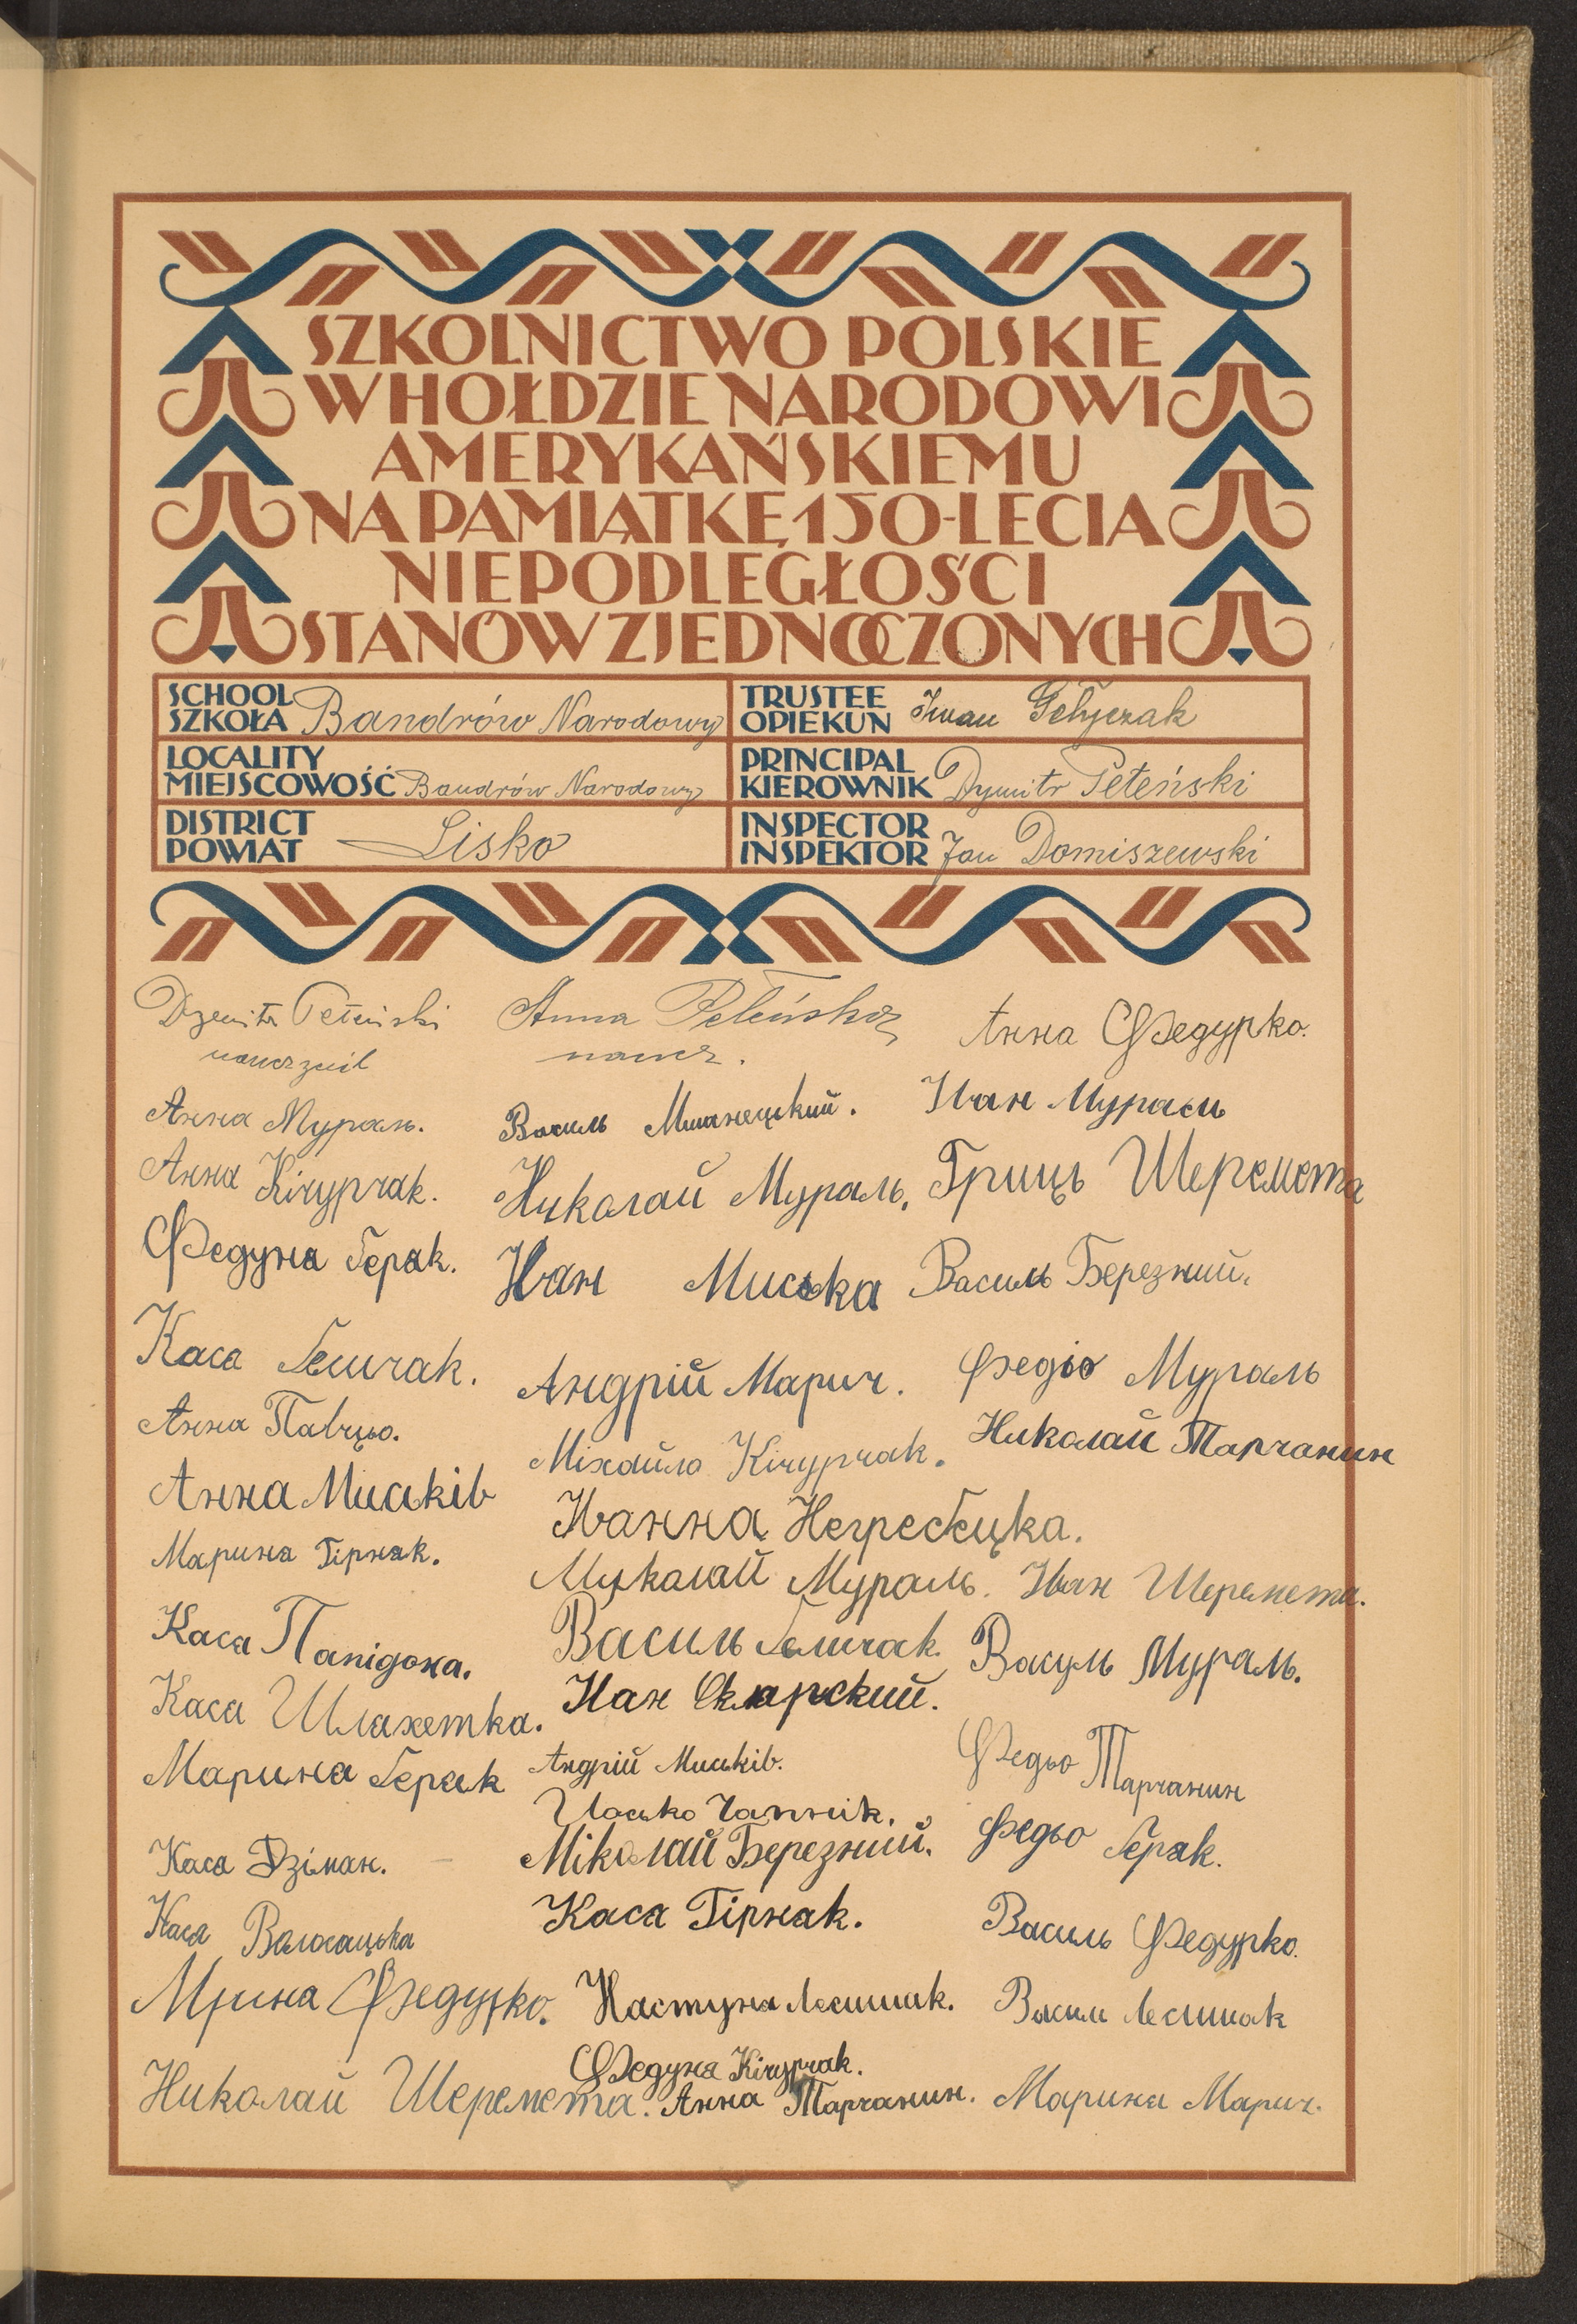 SZKOLNICTWO POLSKIE
W HOŁDZIE NARODOWI
AMERYKAŃSKIEMU
NA PAMIĄTKĘ 150-LECIA
NIEPODLEGŁOŚCI
STANÓW ZJEDNOCZONYCH
SCHOOL
SZKOŁA Bandrów Narodowy
TRUSTEE
OPIEKUN Iwan
LOCALITY
MIEJSCOWOŚĆ Bandrów Narodowy
PRINCIPAL
KIEROWNIK Dymitr Peteński
DISTRICT
POWIAT Lisko
INSPECTOR
INSPEKTOR Jan Domiszewski
Dymitr Peteński Anna Peleńska Анна Федурко.
naucz.
Анна Мураль. Василь Мшанецький. Иван Мураль
Анна Кічурчак. Николай Мураль. Гриць Шеремета
Федуна Ґерак. Иван Миська Василь Березний.
Каса Ґеличак. Андрій Марич. Федьо Мураль
Анна Павцьо. Міхайло Кічурчак. Николай Тарчанин
Анна Миськів Иванна Негребецка.
Марина Гірняк. Миколай Мураль. Иван Шеремета.
Каса Папідоха. Василь Ґеличак. Василь Мураль.
Каса Шляхетка. Иан Склярский.
Марина Ґерак Андрій Миськів. Федьо Тарчанин
Иосько Чапник.
Каса Дзіман. Міколай Березний. Федьо Ґерак.
Каса Волосацька Каса Гірняк. Василь Федурко.
Мрина Федурко. Настуня Лесишак. Васили Лесишак
Федуня Кічурчак.
Николай Шеремета. Анна Тарчанин. Марина Марич.